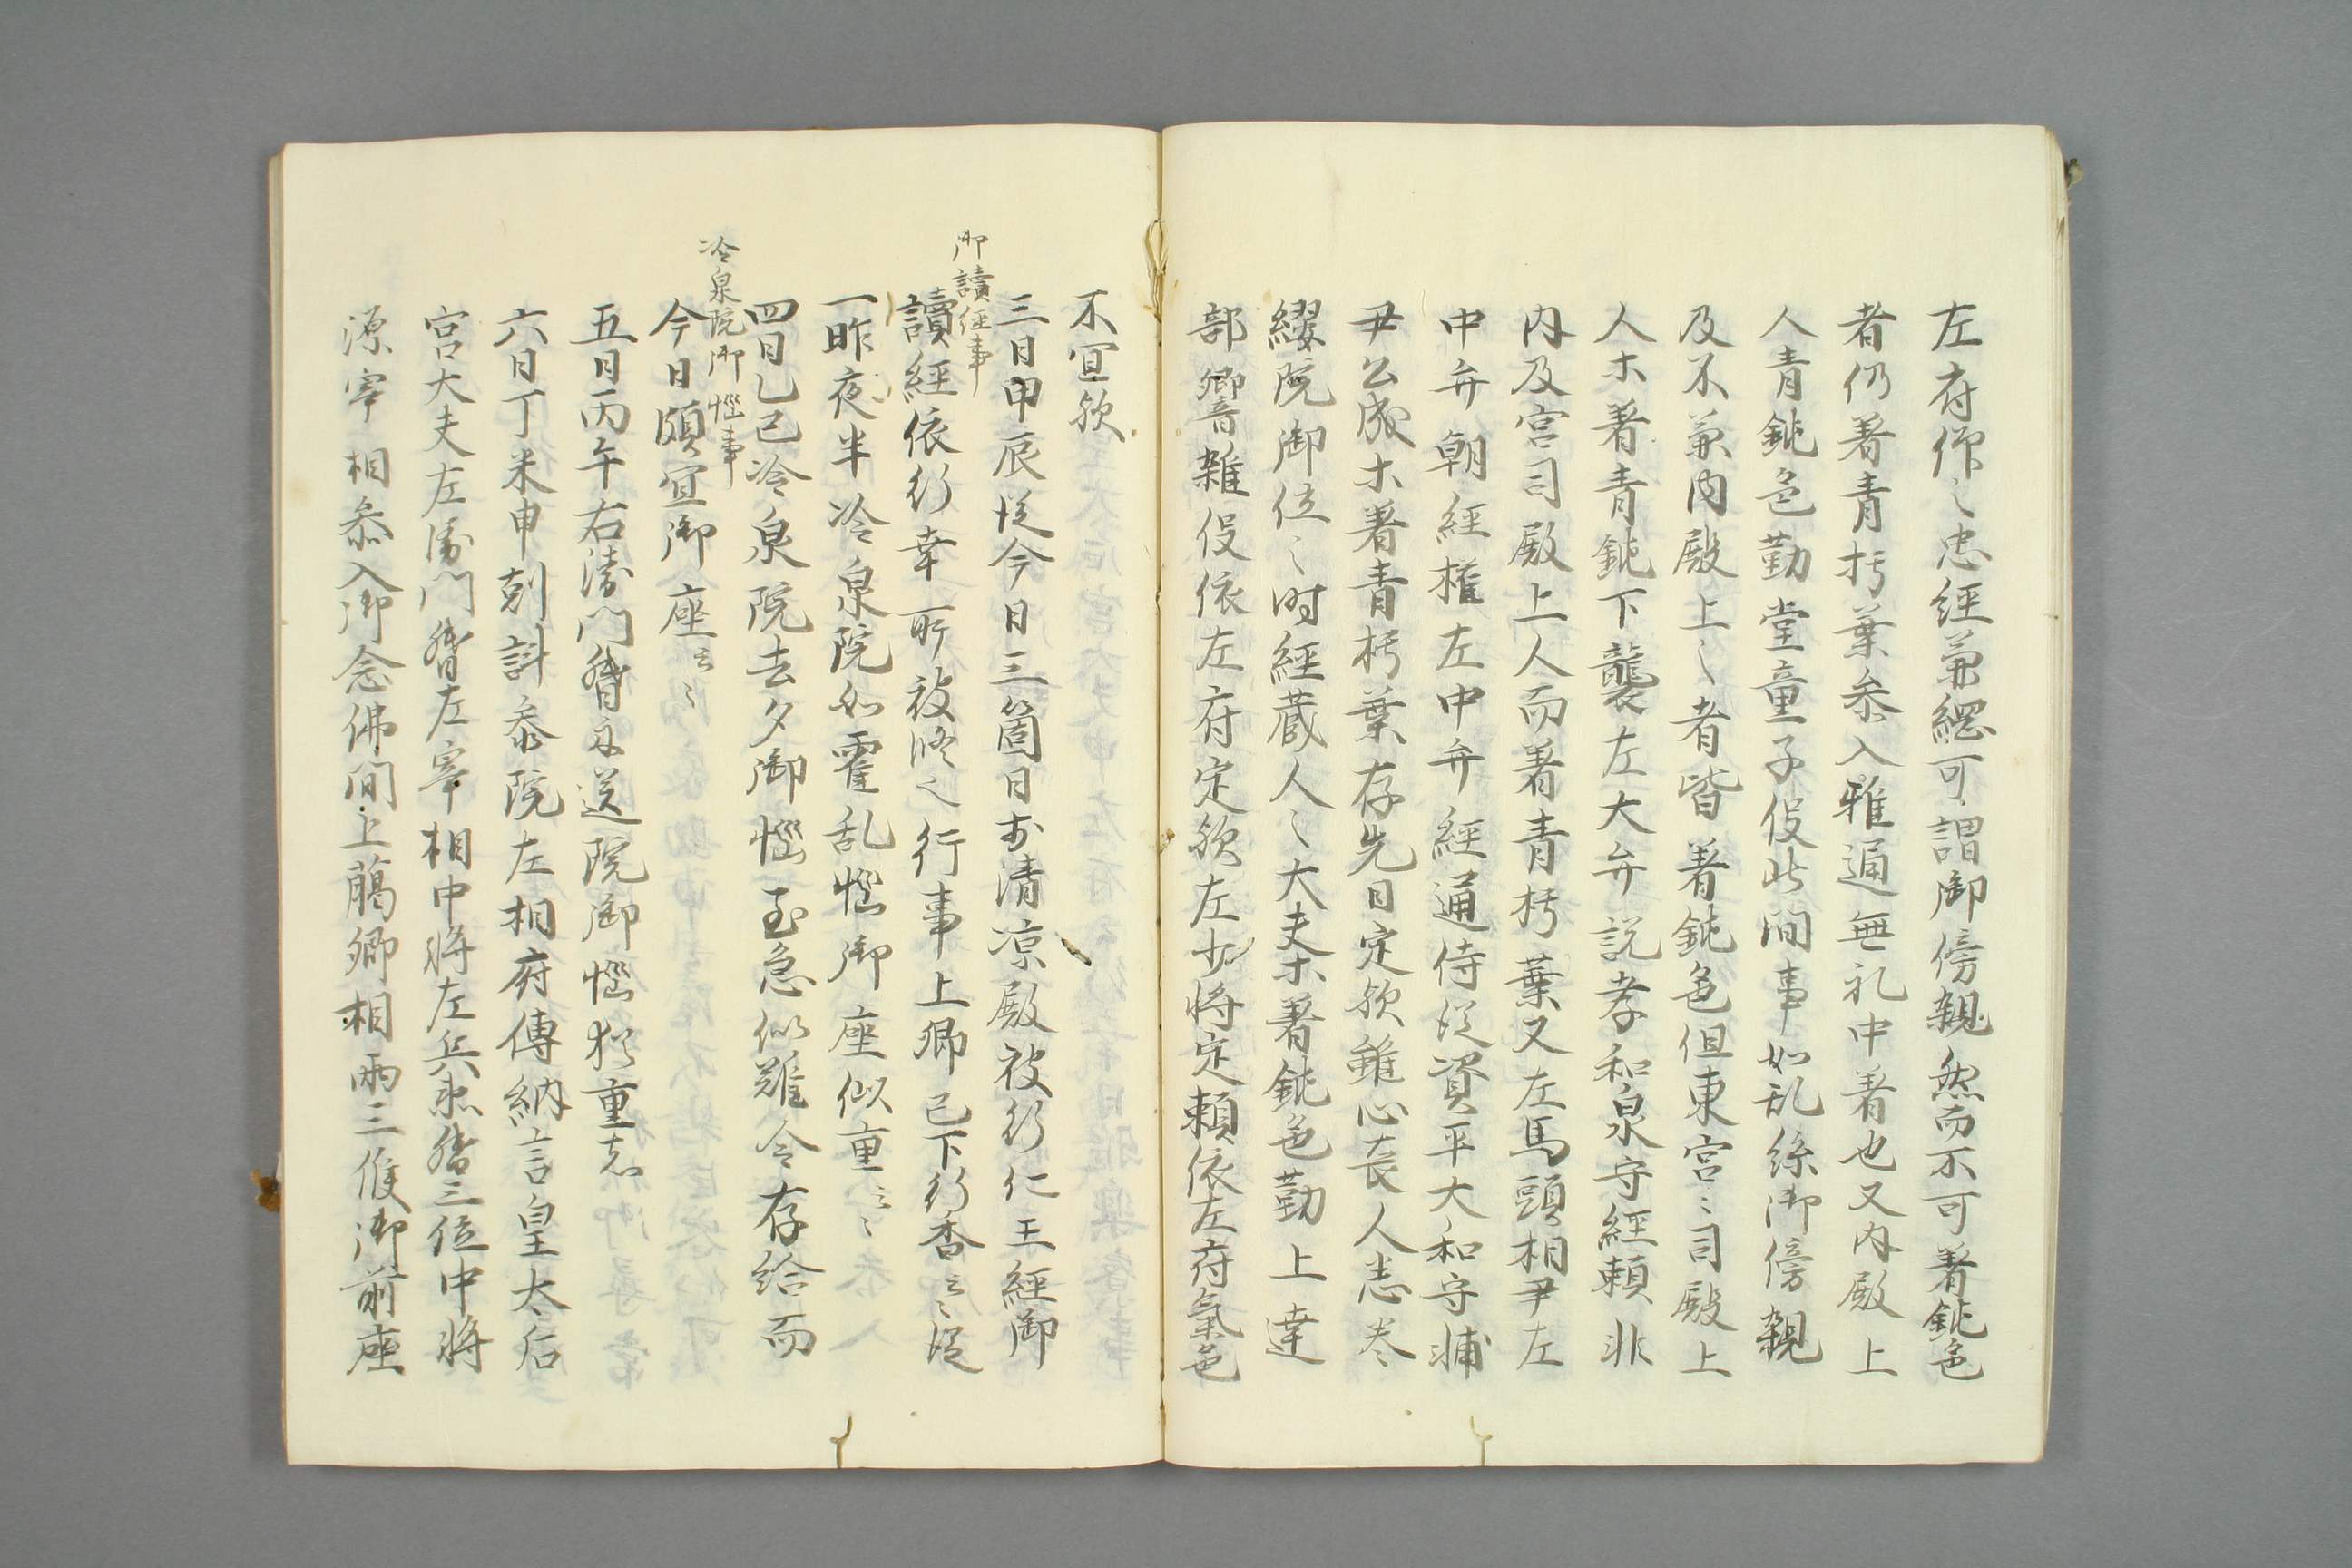 左府作〻忠經兼綱可謂御傍親然而不可著鈍色
者仍著青朽葉参入雅通無礼中著也又内殿上
人青鈍色勤堂童子伇此間事如乱絲御傍親
及不兼内殿上〻者皆著鈍色但東宮〻司殿上
人木著青鈍下襲左大弁説孝和泉守經頼非
内及宮司殿上人而著青朽葉又左馬頭相尹左
中弁朝經権左中弁經通侍従資平大和守輔
尹公成木著青朽葉存先日定欤雖心喪人恙巻
纓院御位〻時經蔵人〻大夫木著鈍色勤上達
部卿音雑伇依左府定欤左少将定頼依左府氣色
不宜欤
御讀經事
三日甲辰従今日三箇日於清凉殿被行仁王經御
讀經依行幸所被修之行事上卿已下行香云〻従
一昨夜半冷泉院如霍乱惱御座似重云〻
冷泉院御惱事
四日乙巳冷泉院去夕御惱至急似難令存給而
今日頗宜御座云〻
五日丙午右衛門督示送院御惱極重者
六日丁未申剋許参院左相府傳納言皇太后
宮大夫左衛門督左宰相中将左兵衛督三位中将
源宰相参入御念佛間上﨟卿相両三候御前座